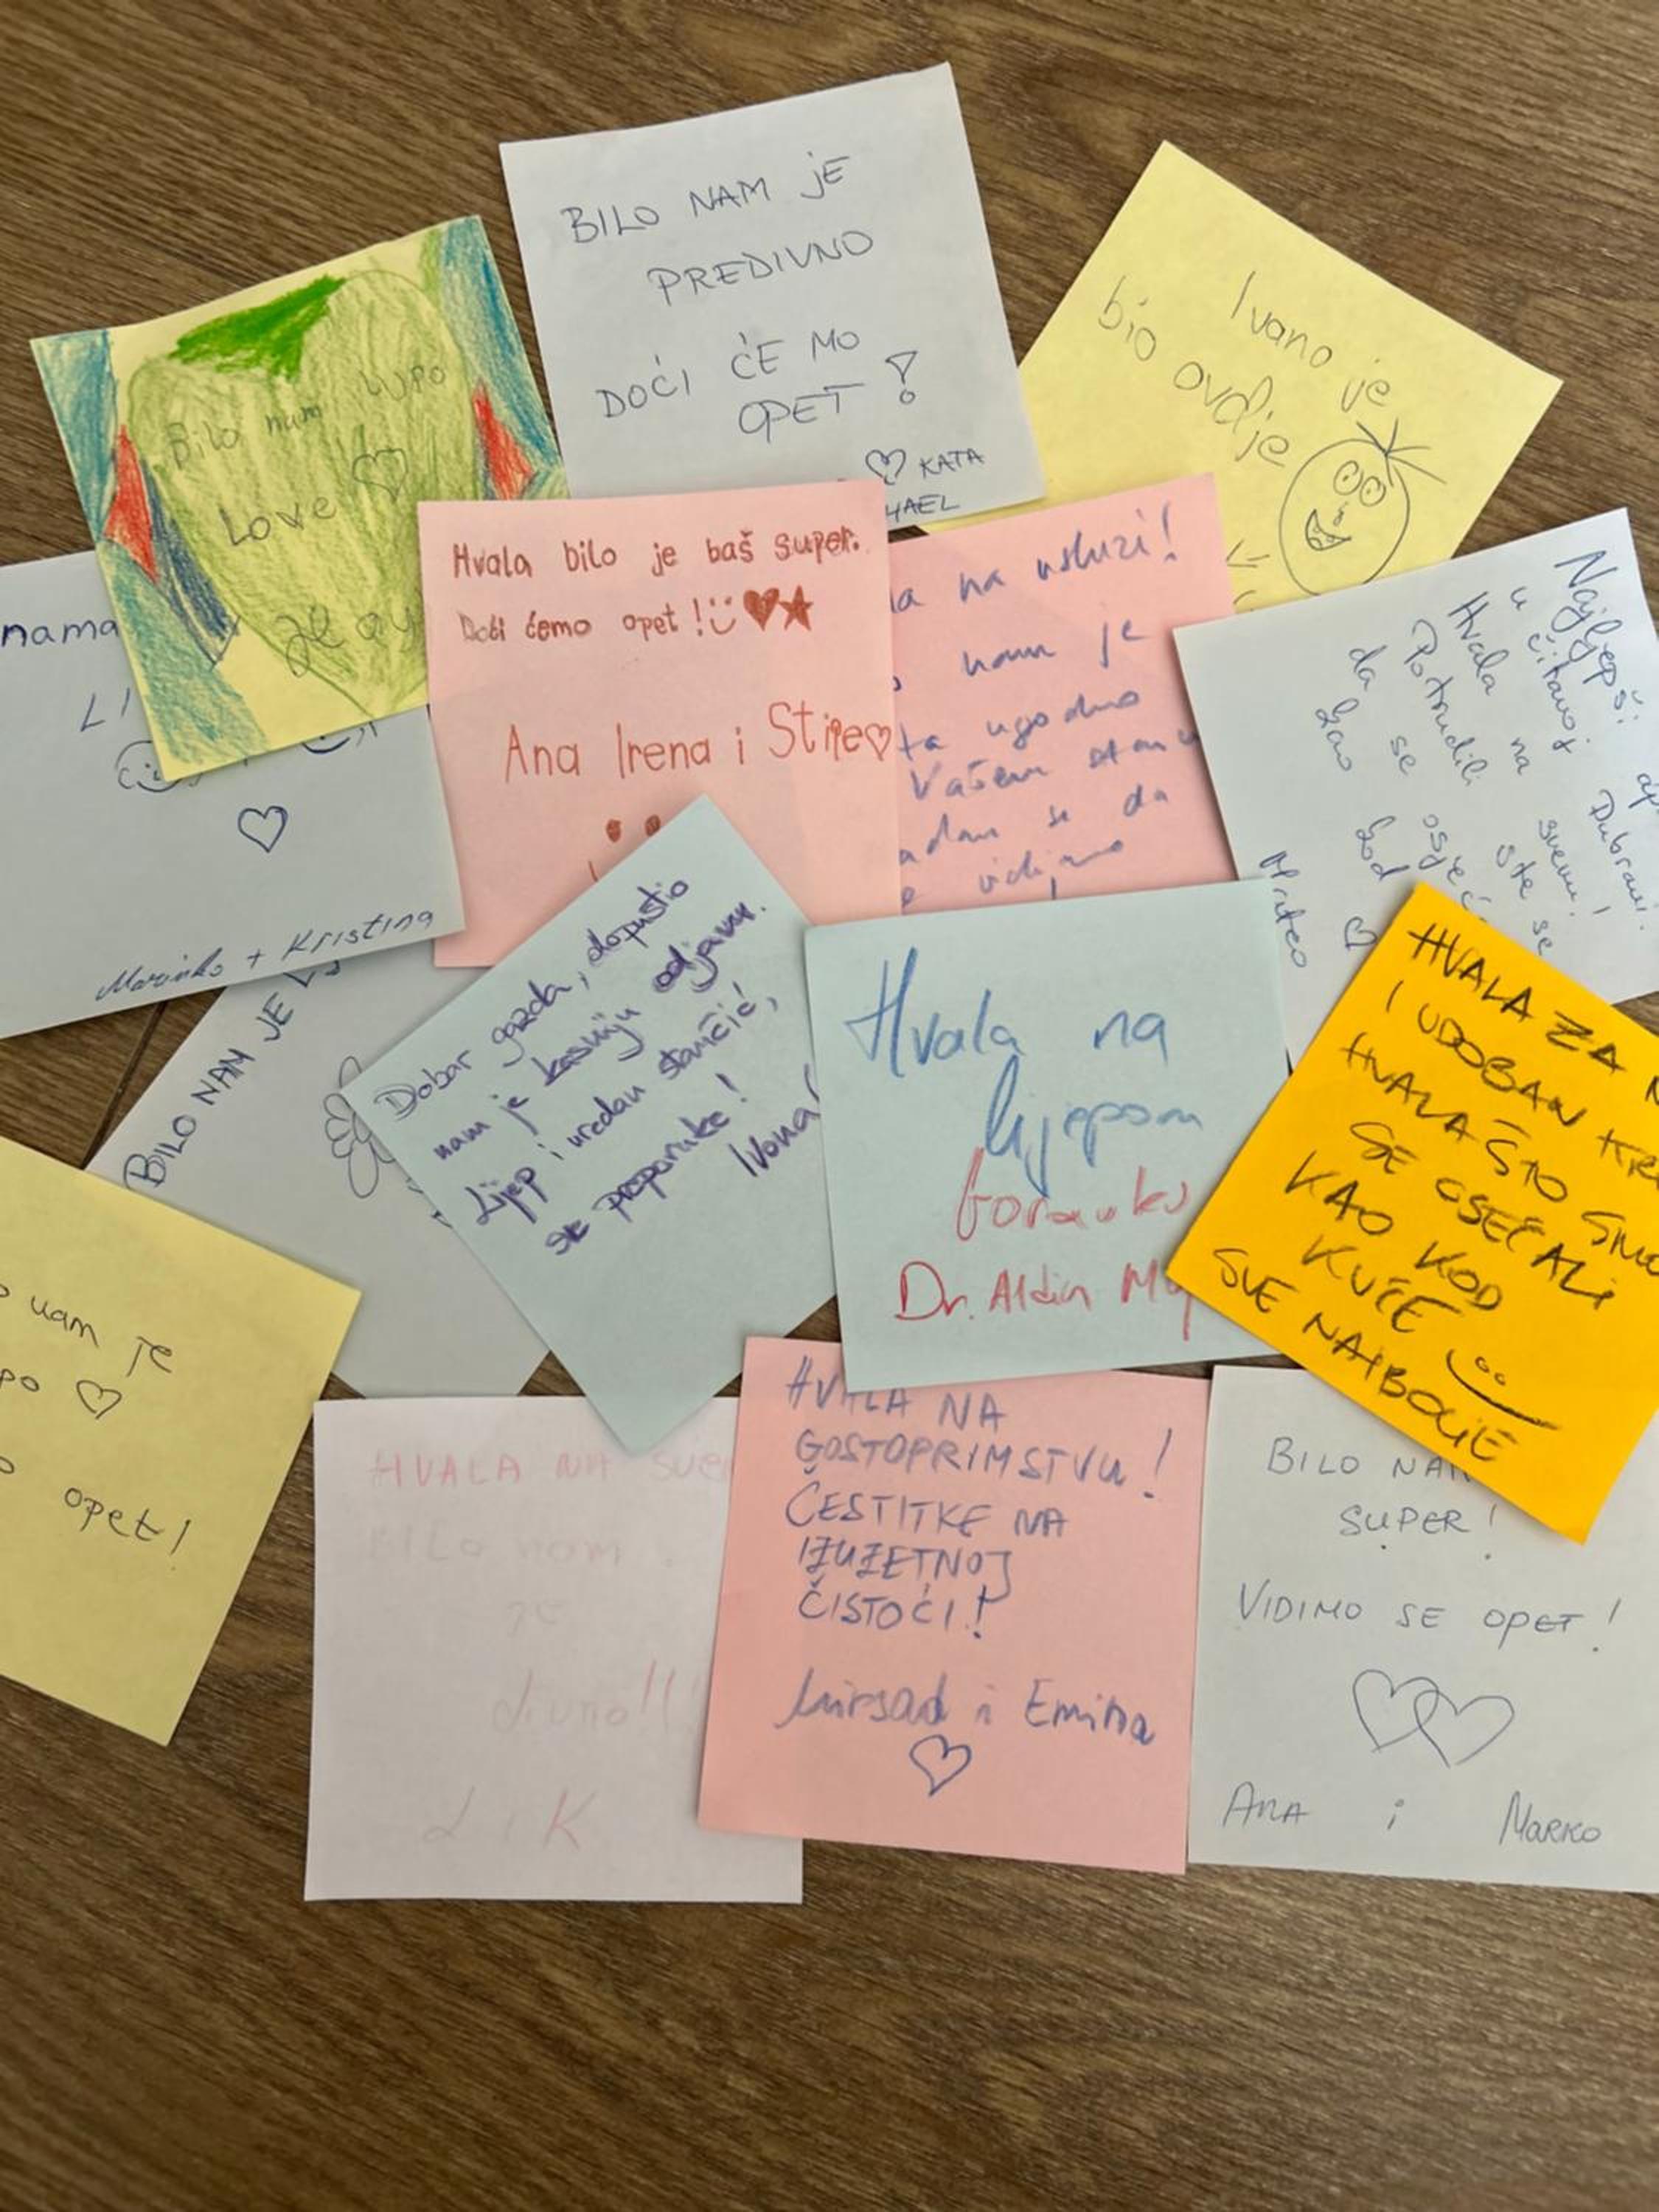 BILO NAM JE
PREDIVNO
DOĆI ĆE MO
OPET !
KATA
HAEL
Ivano je
bio ovdje
Bilo nam LIJPO
Love
Hvala bilo je baš super.
Doći ćemo opet !
Ana Irena i Stipe
na usluzi!
nam je
ugodno
Vašem stanu
se da
vidimo
Najljepši
u čitavoj
Dubravi.
Hvala na svemu!
Potrudili ste se
da se osjeć
kao kod
Mateo
nama
LI
Marinko + Kristina
BILO NAM JE
Dobar gazda, dopustio
nam je kasniju odjavu.
Lijep i uredan stančić,
se preporuke!
Ivona
Hvala na
lijepom
boravku
Dr. Aldin
HVALA ZA
I UDOBAN KRE
HVALA ŠTO SMO
SE OSEĆALI
KAO KOD
KUĆE
SVE NAJBOLJE
nam je
opet!
HVALA NA SVE
BILO NAM
JE
divno!!!
L i K
HVALA NA
GOSTOPRIMSTVU!
ČESTITKE NA
IZUZETNOJ
ČISTOĆI!
Mirsad i Emina
BILO NAM
SUPER!
VIDIMO SE OPET!
ANA i MARKO